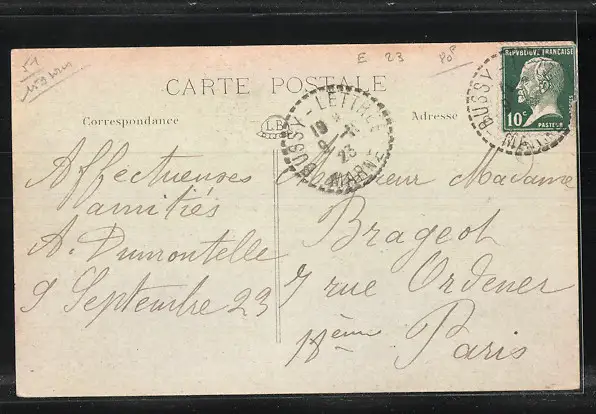 E 23
CARTE POSTALE
Correspondance
LB
Adresse
BUSSY - LETTRÉE
MARNE
23
REPUBLIQUE FRANÇAISE
10c
PASTEUR
POSTES
BUSSY
Affectueuses
amitiés
A. Dumontelle
9 Septembre 23
Monsieur Madame
Brageot
7 rue Ordener
18ème Paris